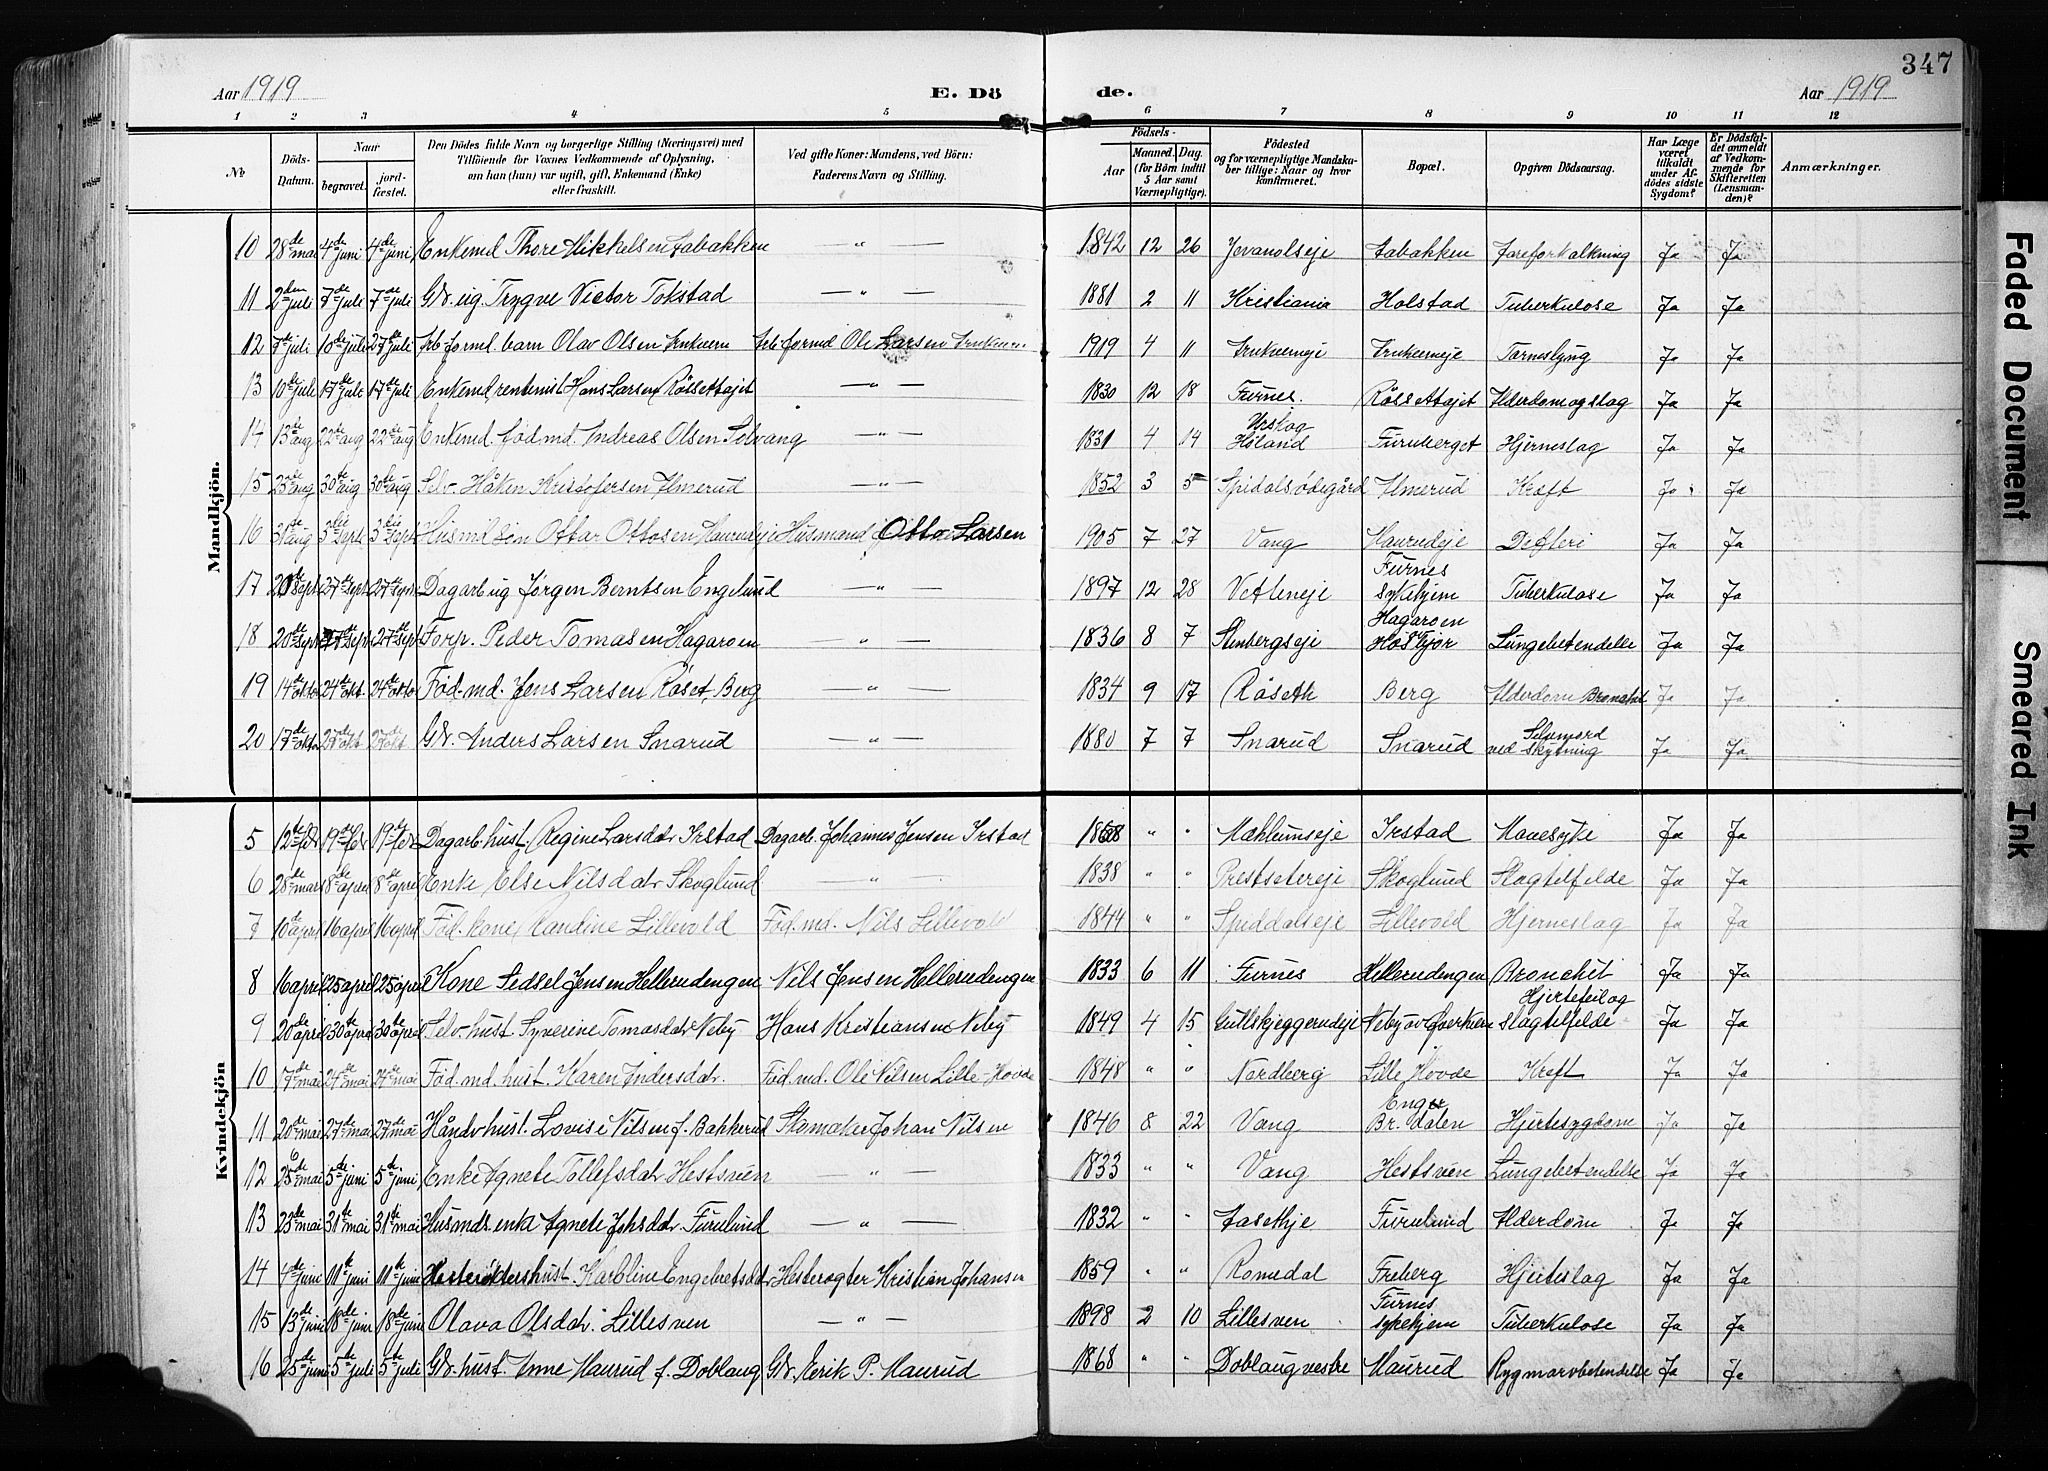 347
Aar 1919 E. Dö de. Aar 1919
1 2 3 4 5 6 7 8 9 10 11 12
№ Döds-Datum. Naar begravet. jord-fæstet. Den Dödes fulde Navn og borgerlige Stilling (Næringsvei) med Tilföiende for Voxnes Vedkommende af Oplysning, om han (hun) var ugift, gift, Enkemand (Enke) eller fraskilt. Ved gifte Koner: Mandens, ved Börn: Faderens Navn og Stilling. Födsels- Aar Maaned. Dag. (for Börn indtil 5 Aar samt Værnepligtige). Födested og for værnepligtige Mandska-ber tillige: Naar og hvor konfirmeret. Bopæl. Opgiven Dödsaarsag. Har Læge været tilkaldt under Af-dödes sidste Sygdom? Er Dödsfal-det anmeldt af Vedkom-mende for Skifteretten (Lensman-den)? Anmærkninger.
Mandkjön.
10 28de mai 4de juni 4de juni Enkemd Thore Mikkelsen Labakken — " — 1842 12 26 Jevanolseje Labakken Åreforkalkning Ja Ja
11 2den juli 7de juli 7de juli Gbr. ug. Trygve Victor Tokstad — " — 1881 2 11 Kristiania Holstad Tuberkulose Ja Ja
12 7de juli 10de juli 27de juli Arb. formd. barn Olav Olsen Arb formd Ole Larsen 1919 4 11 Ja Ja
13 10de juli 17de juli 17de juli Enkemd, rentenist Hans Larsen Røssettajet — " — 1830 12 18 Furnes. Røssettajet Alderdom og slag Ja Ja
14 13de aug 22de aug 22de aug Enkemd. fød.md. Andreas Olsen Solvang — " — 1831 4 14 Urskog Høland Furuberget Hjerneslag Ja Ja
15 23de aug 30te aug 30te aug Selv. Håken Kristofersen Almerud — " — 1852 3 5 Spidalsødegård Almerud Kræft Ja Ja
16 31de aug 3die sept 3die sept Husmd søn Ottar Ottosen Maurudeje Husmand Otto Larsen 1905 7 27 Vang Maurudeje Difteri Ja Ja
17 20de sept 27de sept 27de sept Dagarb ug Jørgen Berntsen Engelund — " — 1897 12 28 Vetteneje Furnes sykehjem Tuberkulose Ja Ja
18 20de sept 27de sept 27de sept Forp. Peder Tomasen Hagaroen — " — 1836 8 7 Stenbergseje Hagaroen Lungebetendelse Ja Ja
19 14de okto 24de okt. 24de okto Fød.md. Jens Larsen Røset, Berg — " — 1834 9 17 Røseth Berg Alderdom Bronchit Ja Ja
20 17de okto 27de okt 27de okt Gbr. Anders Larsen Snarud — " — 1880 7 7 Snarud Snarud Selvmord ved skytning Ja Ja
Kvindekjön
5 12te febr 19de febr 19de febr Dagarb. hust. Regine Larsdatr Irstad Dagarb. Johannes Jensen Irstad 18 " " Mæhlumseje Irstad Mavesyke Ja Ja
6 28de mars 8de april 8de april Enke Else Nilsdatr Skoglund — " — 1838 " " Prestsetereje Skoglund Slagtilfelde Ja Ja
7 10 april 16 april 16 april Fød. kone Randine Lillevold Fød.md. Nils Lillevold 1844 " " Spiddalseje Lillevold Hjerneslag Ja Ja
8 16 april 25 april 25 april Kone Sidsel Jensen Hellerudengen Nils Jensen Hellerudengen 1833 6 11 Furnes Hellerudengen Bronchit Ja Ja
9 20de april 30te april 30te april Selv. hust Syverine Tomasdatr Neby Hans Kristiansen Neby 1849 4 15 Gullskjeggerudeje Neby av Øverkvern Hjertefeil og slagtilfelde Ja Ja
10 17de mai 27de mai 27de mai Fød.md. hust. Karen Andersdatr. Fød.md. Ole Nilsen Lille-Hovde 1848 " " Nordberg Lille Hovde Kreft Ja Ja
11 20de mai 27de mai 27de mai Håndv hust. Lovise Nilsen f. Bakkerud Skomaker Johan Nilsen 1846 8 22 Vang Enger Br.dalen Hjertesygdom Ja Ja
12 25de mai 5de juni 5de juni Enke Agnete Tollefsdatr Hestsveen — " — 1833 " " Vang Hestsven Lungebetendelse Ja Ja
13 23de mai 31te mai 31te mai Husmds. enke Agnete Johsdatr Furulund — " — 1832 " " Aasethje Furulund Alderdom Ja Ja
14 4de juni 11te juni 11te juni hust. Karoline Engebretsdatr Hesterøgter Kristian Johansen 1859 " " Romedal Freberg Hjerteslag Ja Ja
15 13de juni 18de juni 18de juni Olava Olsdatr. Lillesven — " — 1898 2 10 Lillesven Furnes sykehjem Tuberkulose Ja Ja
16 25de juni 5de juli 5de juli Gbr. hust. Anne Maurud f. Doblaug Gbr. Eerik P. Maurud 1868 " " Doblaug vestre Maurud Rygmarvbetendelse Ja Ja
Faded Document
Smeared Ink